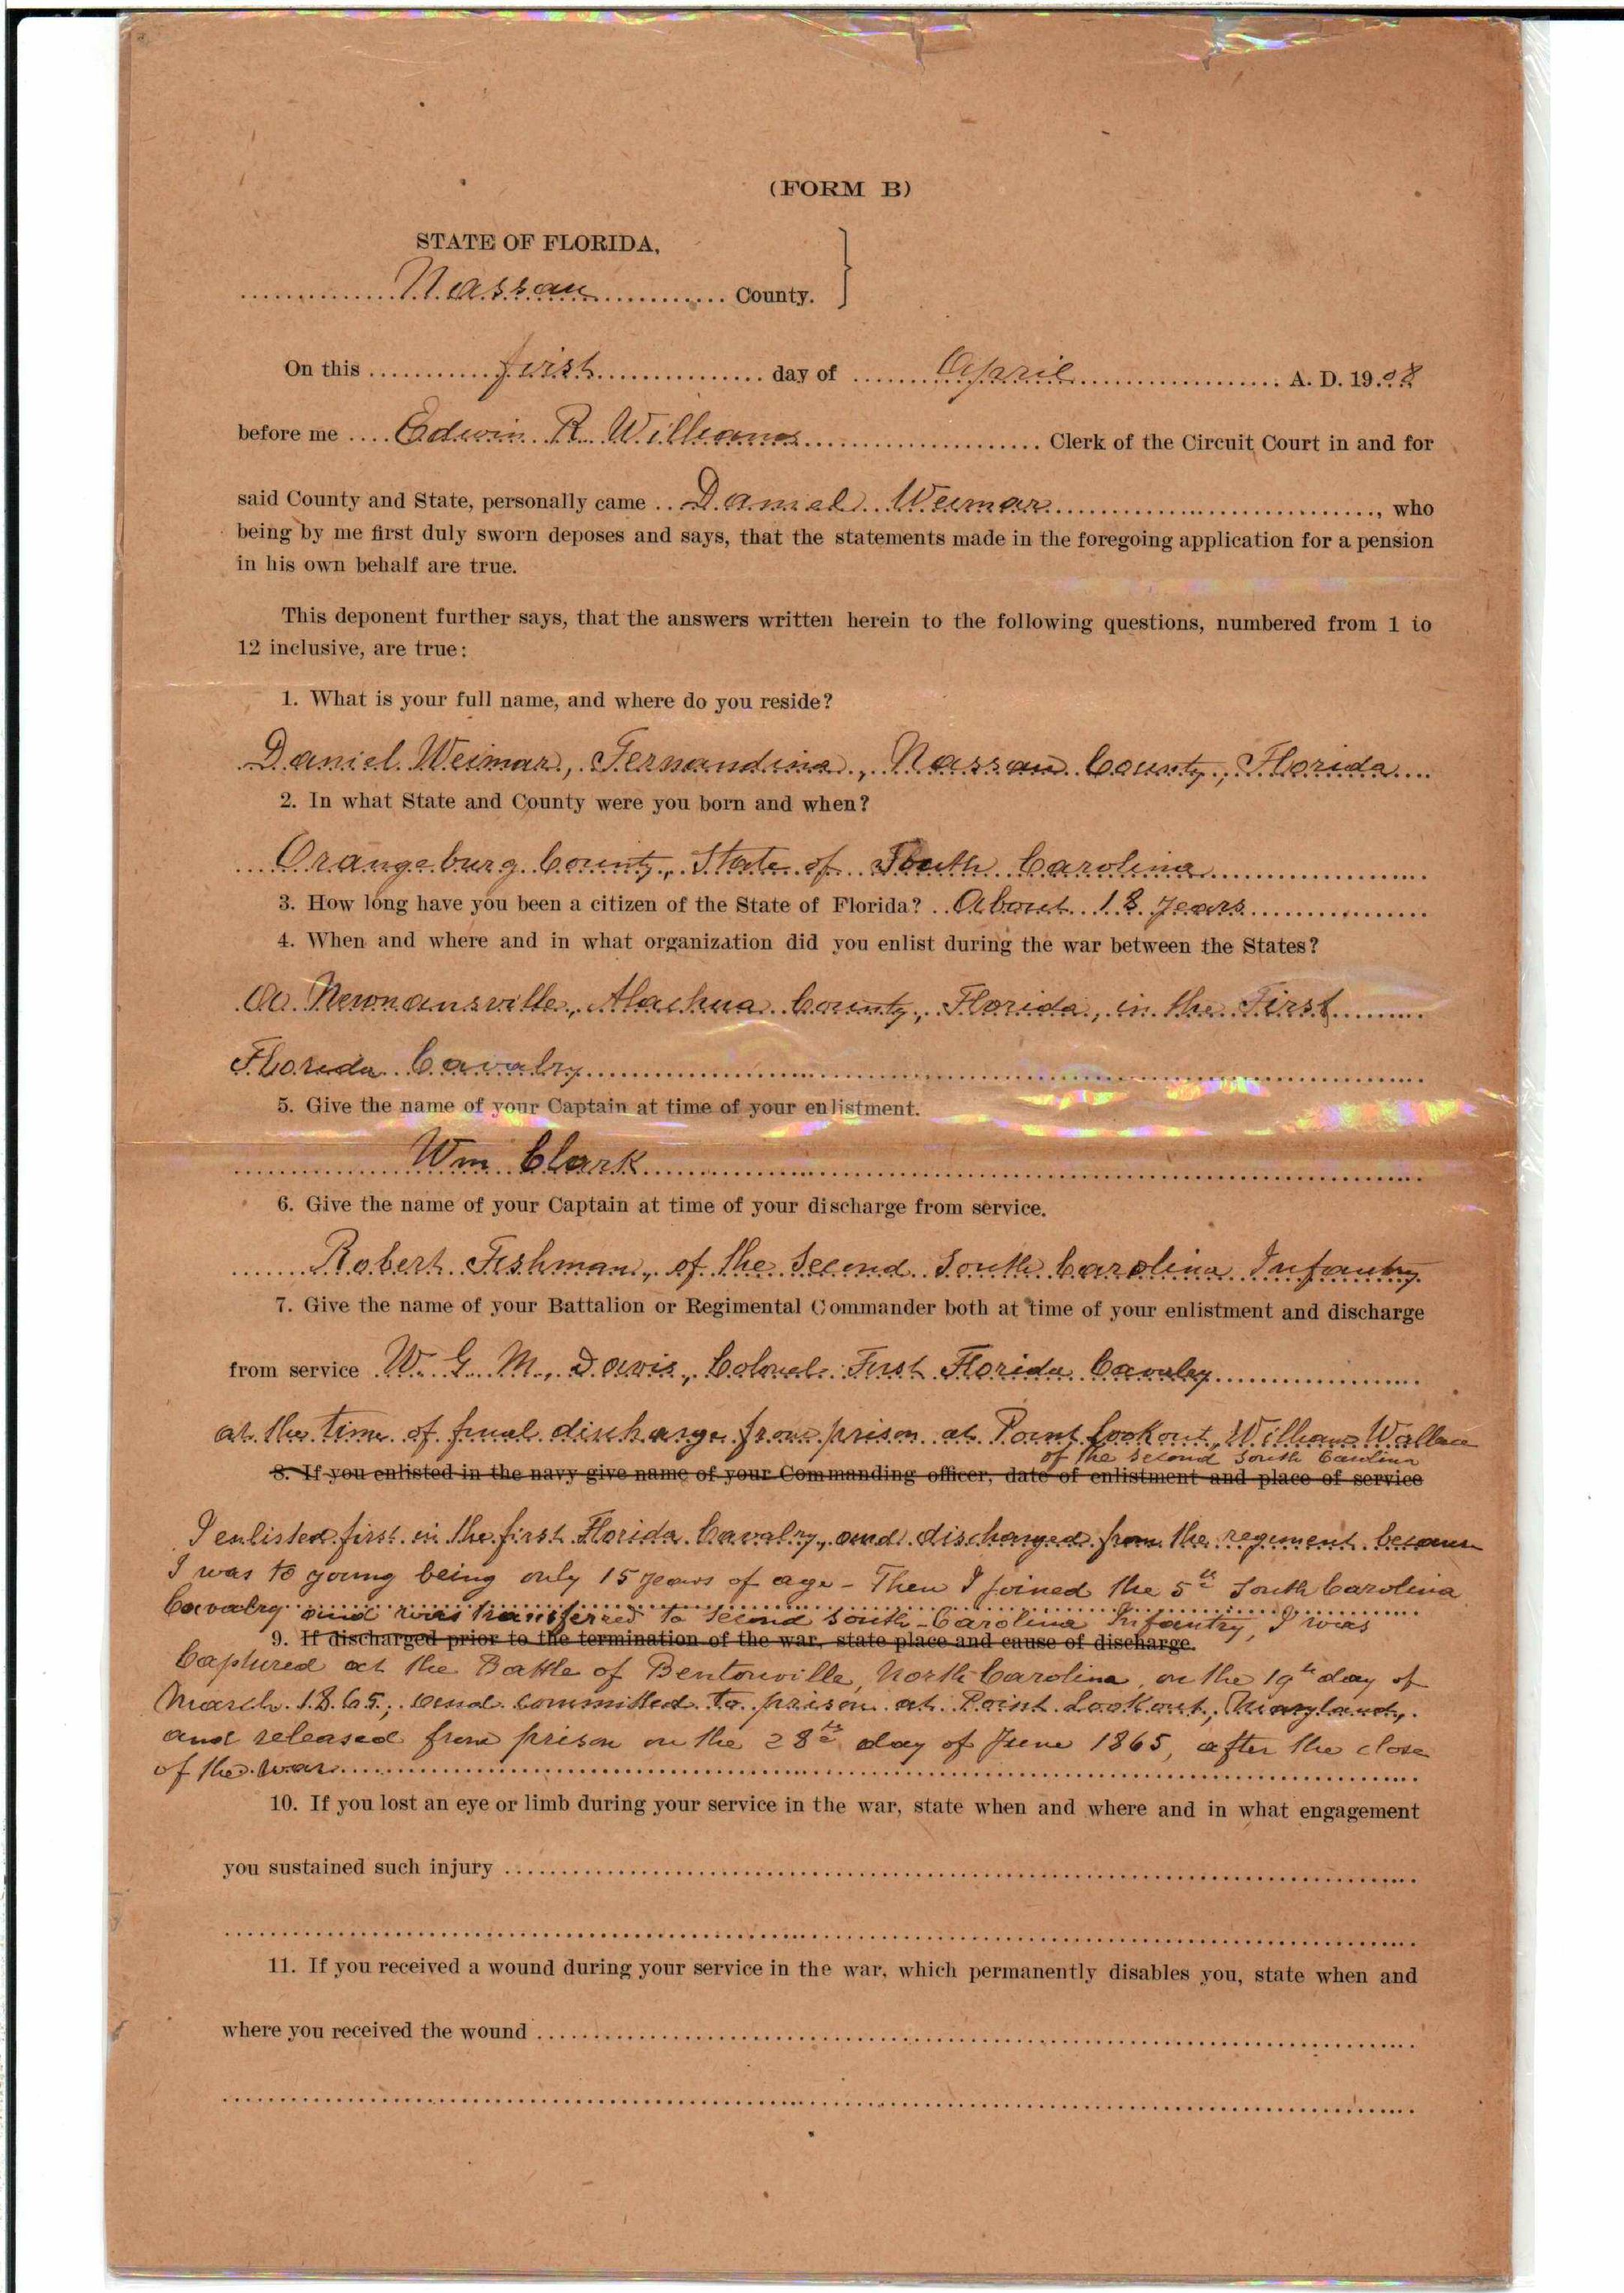 (FORM B)
STATE OF FLORIDA,
Nassau County.
On this first day of April A. D. 1908
before me Edwin R. Williams Clerk of the Circuit Court in and for
said County and State, personally came Daniel Weimar, who
being by me first duly sworn deposes and says, that the statements made in the foregoing application for a pension
in his own behalf are true.
This deponent further says, that the answers written herein to the following questions, numbered from 1 to
12 inclusive, are true:
1. What is your full name, and where do you reside?
Daniel Weimar, Fernandina, Nassau County, Florida
2. In what State and County were you born and when?
Orangeburg County, State of South Carolina
3. How long have you been a citizen of the State of Florida? About 18 years
4. When and where and in what organization did you enlist during the war between the States?
Newnansville, Alachua County, Florida, in the First
Florida Cavalry
5. Give the name of your Captain at time of your enlistment.
Wm Clark
6. Give the name of your Captain at time of your discharge from service.
Robert Fishman, of the Second South Carolina Infantry
7. Give the name of your Battalion or Regimental Commander both at time of your enlistment and discharge
from service W. G. M. Davis, Colonel First Florida Cavalry
at the time of final discharge from prison at Point Lookout, William Wallace
of the Second South Carolina
8. If you enlisted in the navy give name of your Commanding officer, date of enlistment and place of service
I enlisted first in the first Florida Cavalry, and discharged from the regiment because
I was to young being only 15 years of age - Then I joined the 5th South Carolina
Cavalry and was transferred to Second South-Carolina Infantry, I was
9. If discharged prior to the termination of the war, state place and cause of discharge.
Captured at the Battle of Bentonville, North Carolina, on the 19th day of
March 1865; and committed to prison at Point Lookout, Maryland,
and released from prison on the 28th day of June 1865, after the close
of the war
10. If you lost an eye or limb during your service in the war, state when and where and in what engagement
you sustained such injury
11. If you received a wound during your service in the war, which permanently disables you, state when and
where you received the wound